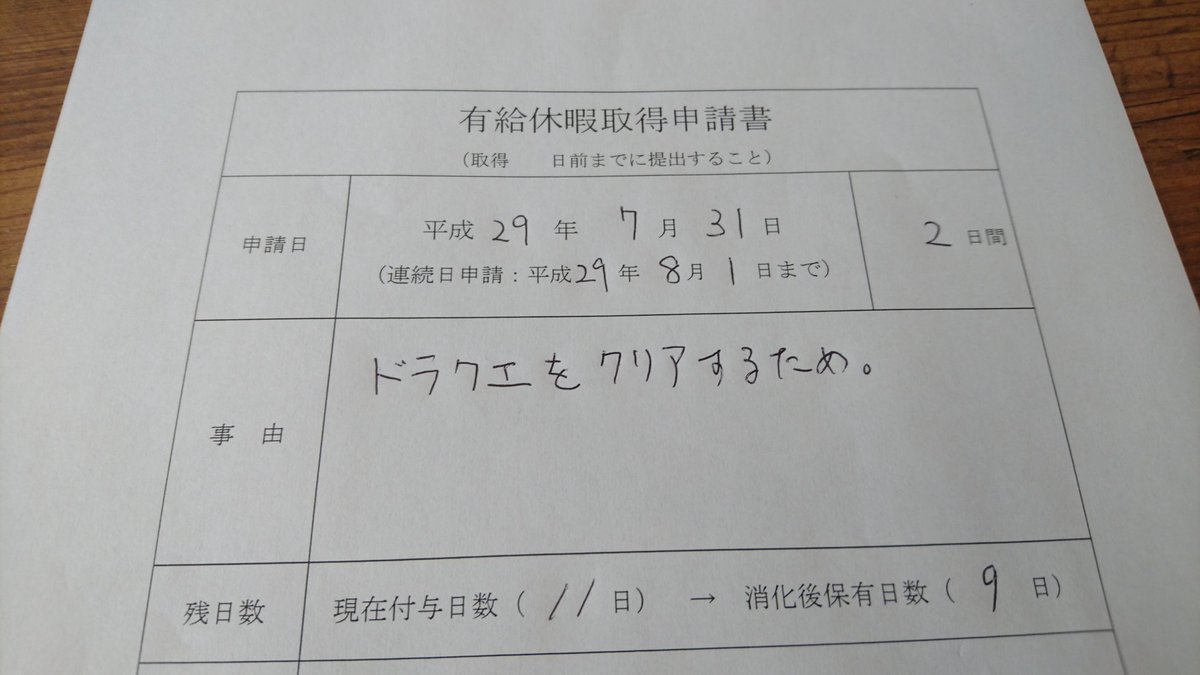 有給休暇取得申請書
（取得　　日前までに提出すること）
申請日
平成 29 年 7 月 31 日
（連続日申請：平成29年 8月 1 日まで）
2 日間
事　由
ドラクエをクリアするため。
残日数
現在付与日数（ 11 日） → 消化後保有日数（ 9 日）